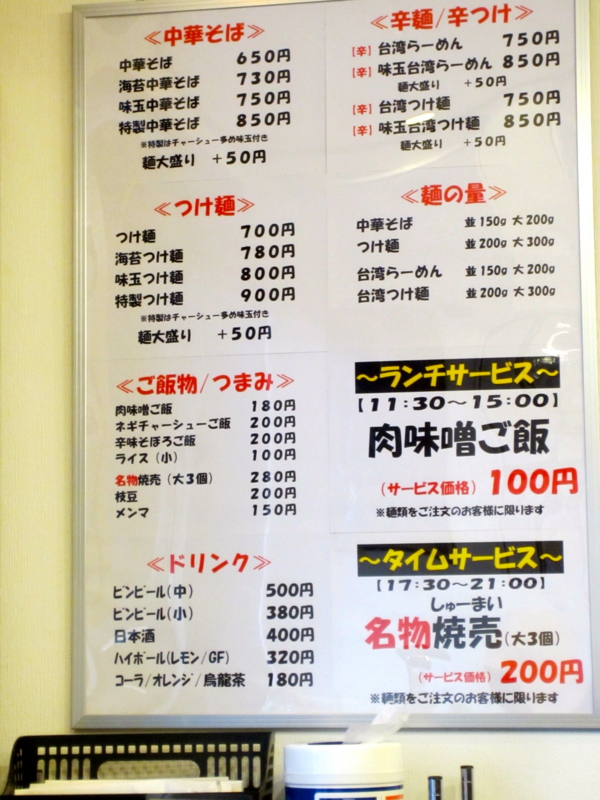 ≪中華そば≫
中華そば 650円
海苔中華そば 730円
味玉中華そば 750円
特製中華そば 850円
※特製はチャーシュー多め味玉付き
麺大盛り +50円
≪つけ麺≫
つけ麺 700円
海苔つけ麺 780円
味玉つけ麺 800円
特製つけ麺 900円
※特製はチャーシュー多め味玉付き
麺大盛り +50円
≪ご飯物/つまみ≫
肉味噌ご飯 180円
ネギチャーシューご飯 200円
辛味そぼろご飯 200円
ライス(小) 100円
名物焼売(大3個) 280円
枝豆 200円
メンマ 150円
≪ドリンク≫
ビンビール(中) 500円
ビンビール(小) 380円
日本酒 400円
ハイボール(レモン/GF) 320円
コーラ/オレンジ/烏龍茶 180円
≪辛麺/辛つけ≫
【辛】台湾らーめん 750円
【辛】味玉台湾らーめん 850円
麺大盛り +50円
【辛】台湾つけ麺 750円
【辛】味玉台湾つけ麺 850円
麺大盛り +50円
≪麺の量≫
中華そば 並150g 大200g
つけ麺 並200g 大300g
台湾らーめん 並150g 大200g
台湾つけ麺 並200g 大300g
～ランチサービス～
【11:30～15:00】
肉味噌ご飯
(サービス価格) 100円
※麺類をご注文のお客様に限ります
～タイムサービス～
【17:30～21:00】
しゅーまい
名物焼売(大3個)
(サービス価格) 200円
※麺類をご注文のお客様に限ります